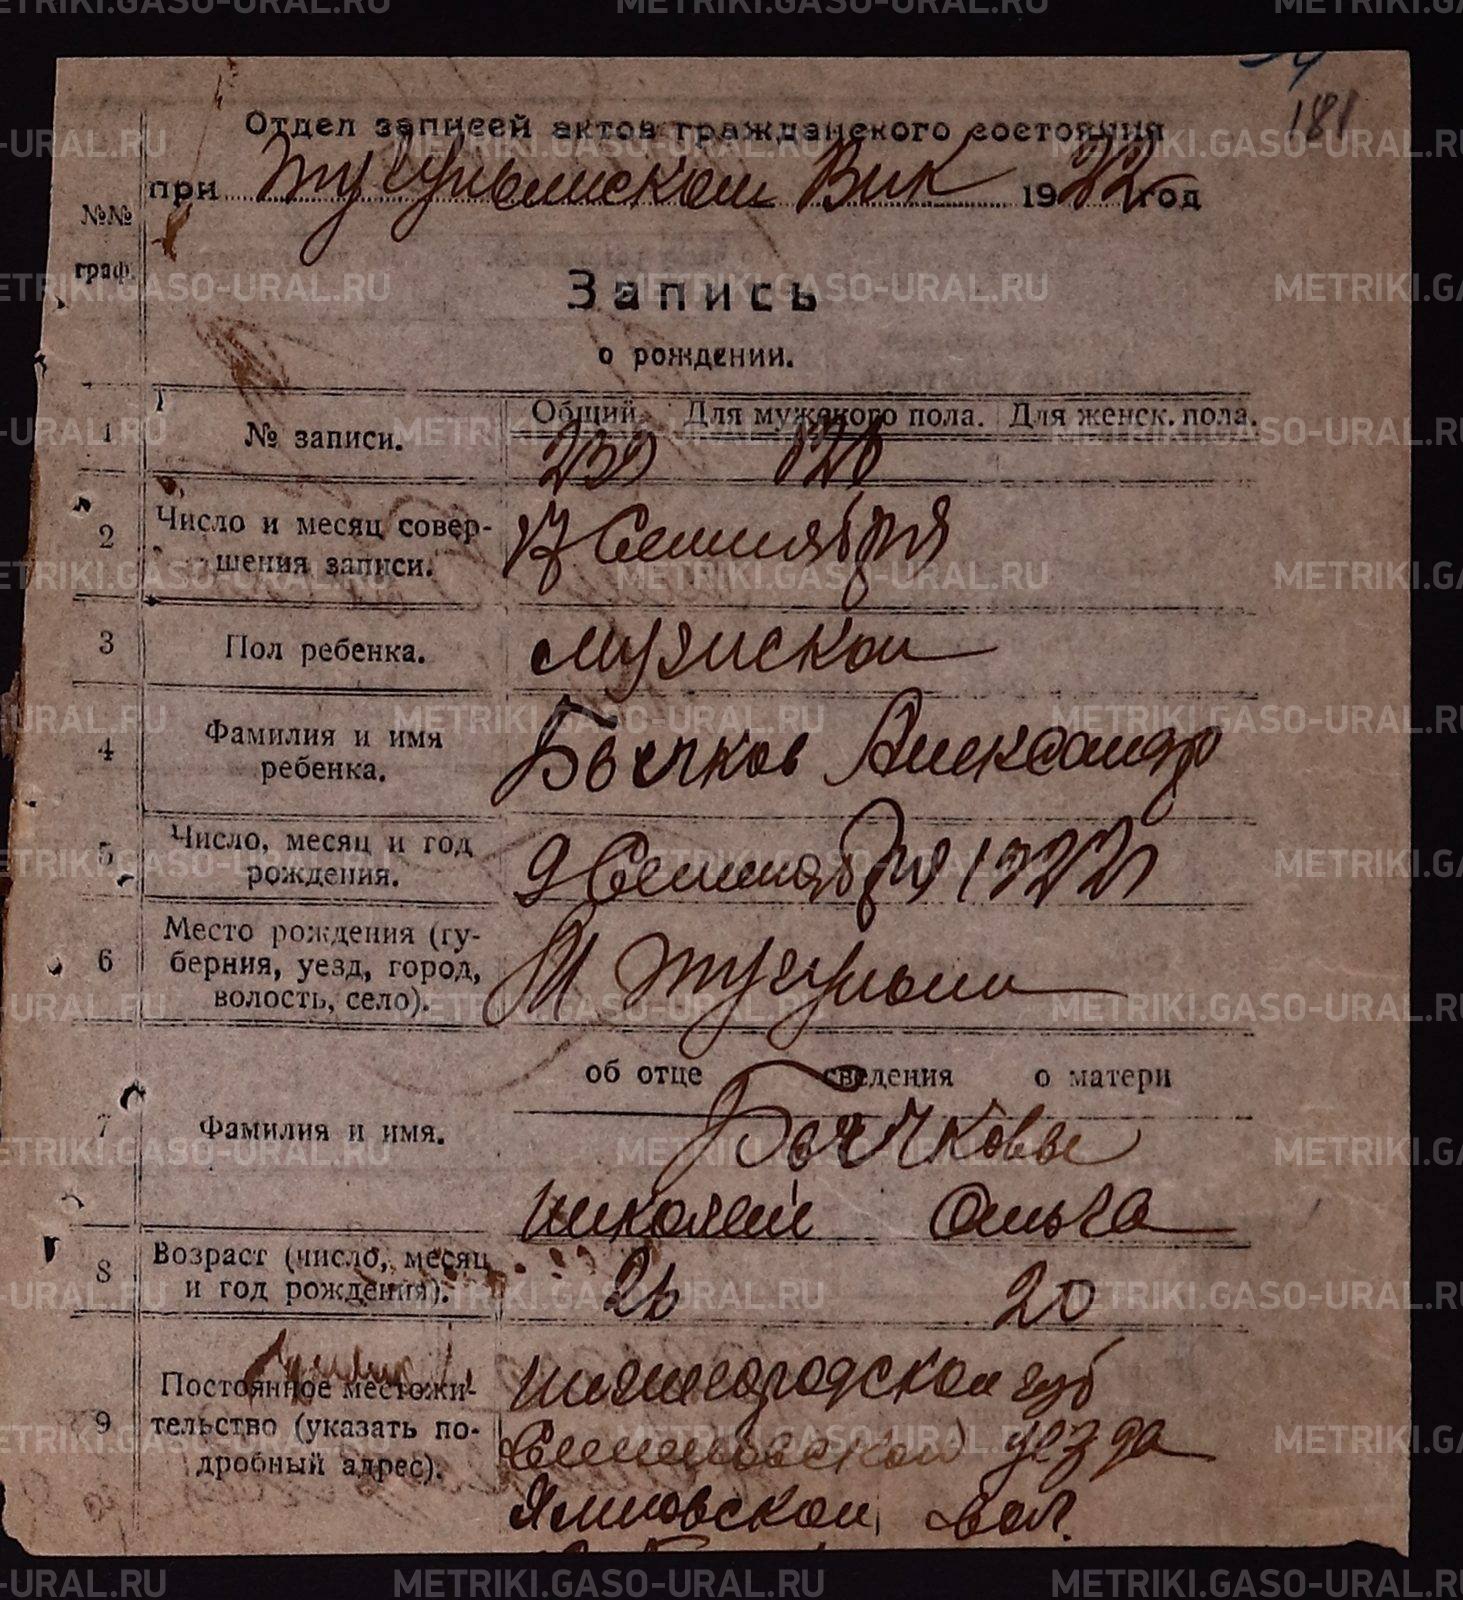 181
Отдел записей актов гражданского состояния
при Тугулымском Вик 1922 год
№№
граф.
Запись
о рождении.
Общий. Для мужского пола. Для женск. пола.
1 № записи. 239 126
2 Число и месяц совер-
шения записи. 17 Сентября
3 Пол ребенка. мужской
4 Фамилия и имя
ребенка. Бычков Александр
5 Число, месяц и год
рождения. 9 Сентября 1922
6 Место рождения (гу-
берния, уезд, город,
волость, село). Тугулым
об отце сведения о матери
7 Фамилия и имя. Бычковы
Николай Ольга
8 Возраст (число, месяц
и год рождения). 26 20
9 Постоянное местожи-
тельство (указать по-
дробный адрес).
Нижегородской губ
Семеновской уезда
вол.
METRIKI.GASO-URAL.RU